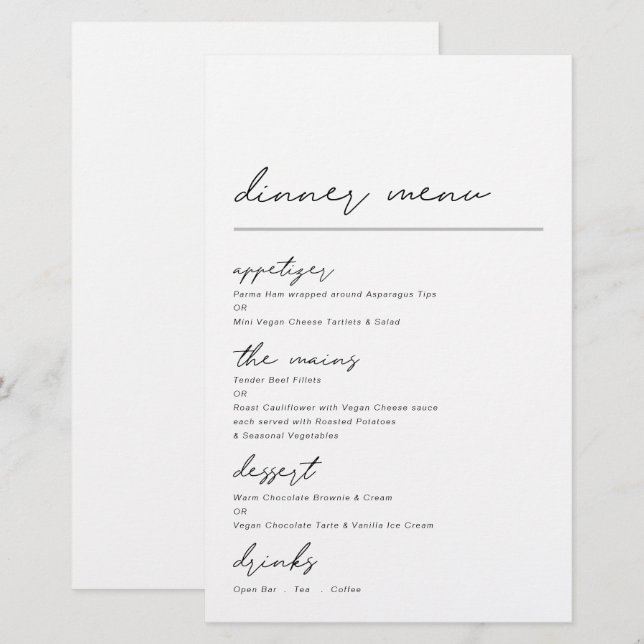 dinner menu
appetizer
Parma Ham wrapped around Asparagus Tips
OR
Mini Vegan Cheese Tartlets & Salad
the mains
Tender Beef Fillets
OR
Roast Cauliflower with Vegan Cheese sauce
each served with Roasted Potatoes
& Seasonal Vegetables
dessert
Warm Chocolate Brownie & Cream
OR
Vegan Chocolate Tarte & Vanilla Ice Cream
drinks
Open Bar . Tea . Coffee